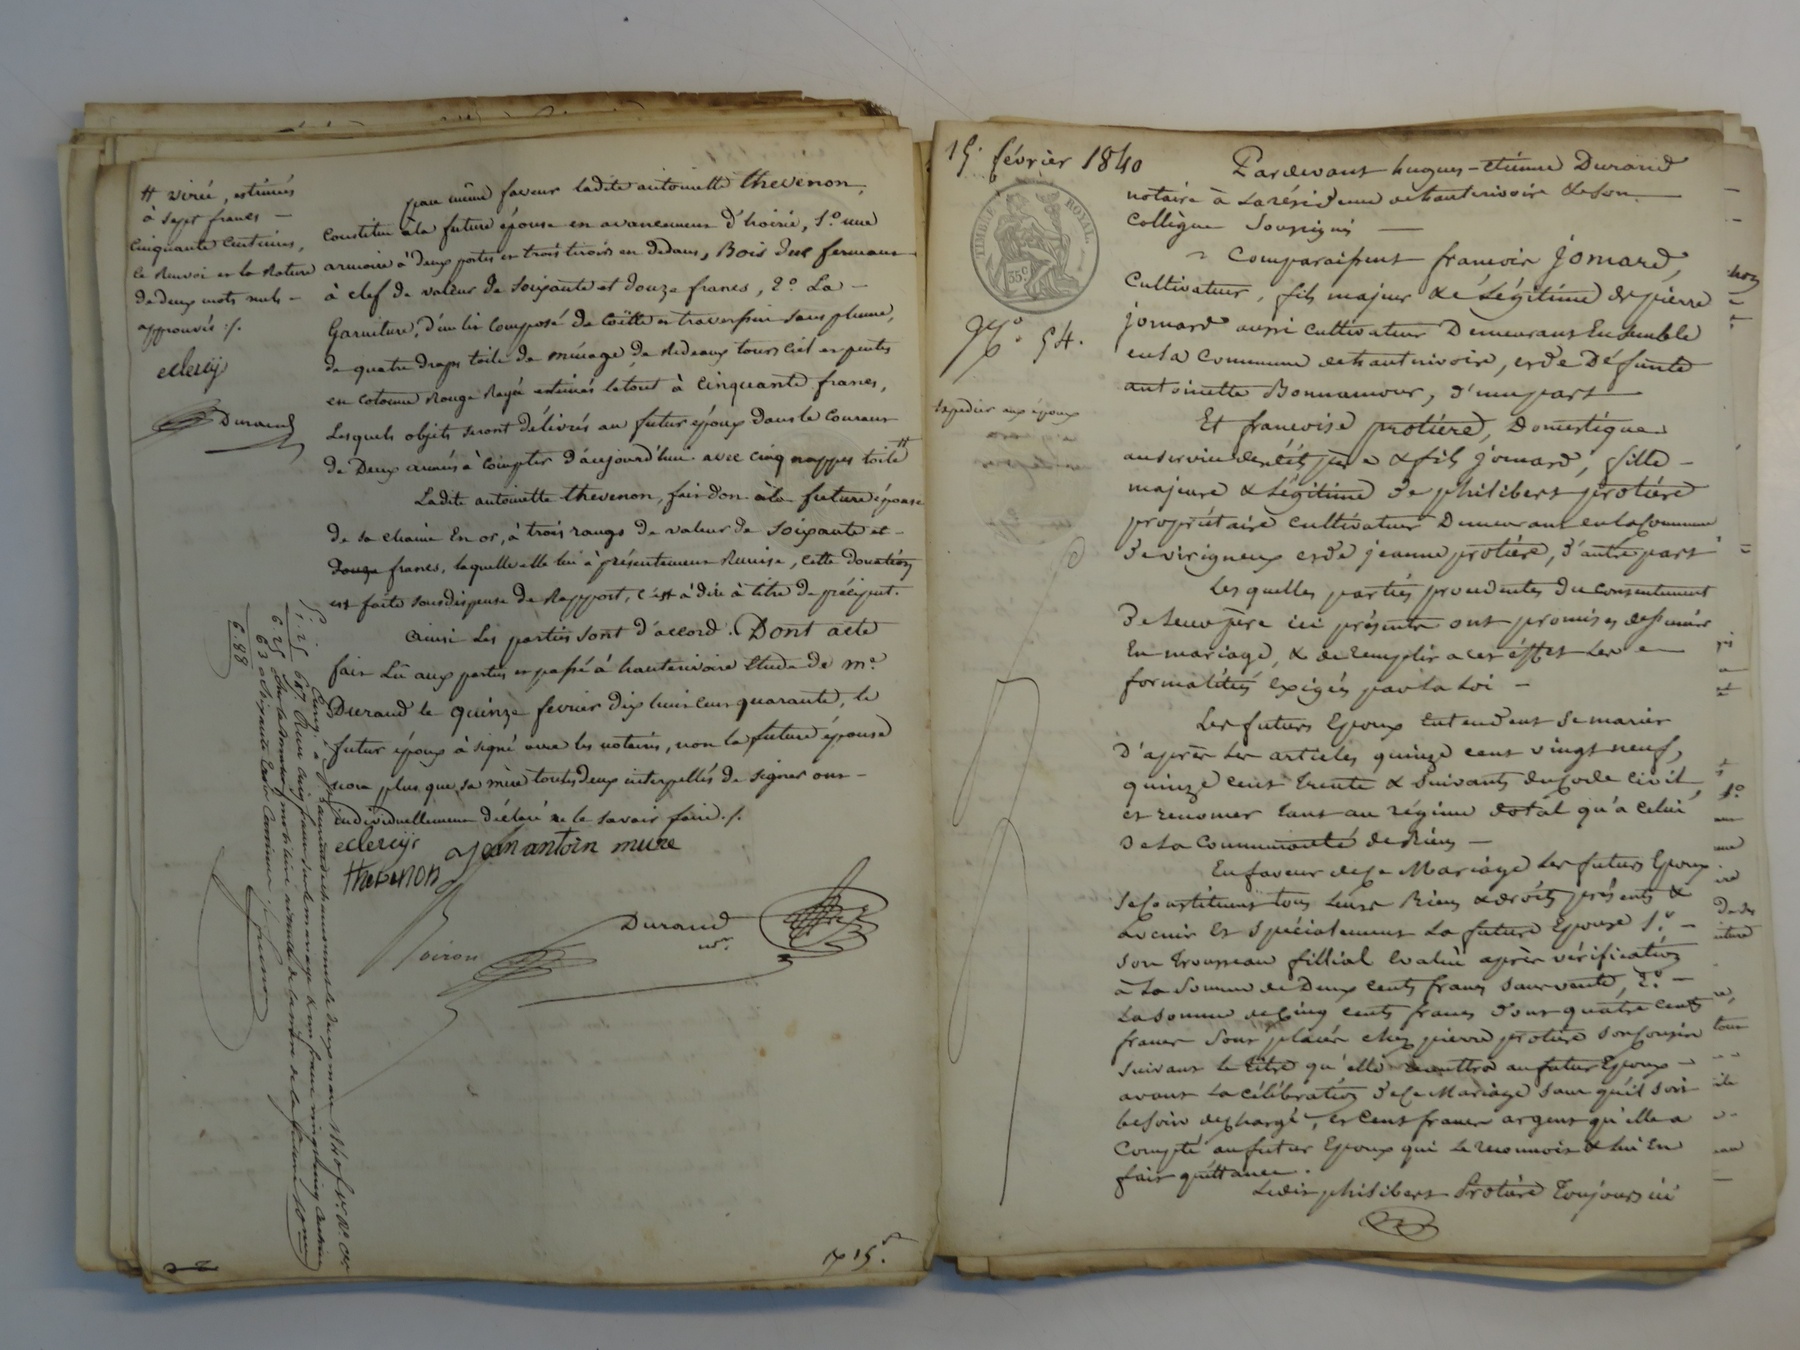 par même faveur ladite antoinette thevenon,
constitue à la future épouse en avancement d'hoirie, 1.º une
armoire à deux portes et trois tiroirs en dedans, Bois dur fermant
à clef de valeur de soixante et douze francs, 2.º La –
Garniture, d'un lit composé de coëtte et traversin sans plume,
de quatre draps toile de ménage de Rideaux tours ciel et pentes
en cotonne Rouge Rayé estimés le tout à cinquante francs,
Lesquels objets seront délivrés au futur époux dans le courant
de Deux années à compter d'aujourd'hui avec cinq nappes toile #
Ladite antoinette thevenon, fait don à la future épouse
de sa chaine En or, à trois rangs de valeur de soixante et –
Douze francs, laquelle elle lui à présentement Remise, cette donation
est faite sous dispense de Rapport, c'est à dire à titre de préciput.
Ainsi Les parties sont d'accord. Dont acte
fait Lû aux parties et passé à hauterivoire Etude de m.e
Durand le quinze fevrier dix huit cent quarante, le
futur époux à signé avec les notaires, non la future épouse
non plus que sa mère toutes deux interpellés de signer ont –
individuellement déclaré ne le savoir faire ./.
eclercÿ jean antoin mure
thevenon
Voiron
Durand
nore
# virée, estimées
à sept francs –
cinquante centimes,
le Renvoi et la Rature
de deux mots nuls –
approuvés ./.
eclercÿ
Durand
5.
1. 25
6. 25
63
6.88
15 février 1840
TIMBLE ROYAL.
35c
Nº 54.
Expédier aux époux
Pardevant hugues-etienne Durand
notaire à La résidence de hauterivoire & son
collègue Soussignés –
Comparaissent francois jomard,
Cultivateur, fils majeur & Légitime de pierre
jomard aussi cultivateur Demeurant Ensemble
en la commune de hauterivoire, et de Défunte
antoinette Bonnamour, d'une part
Et francoise protière, Domestique
au service desdits père & fils jomard, fille –
majeure & Légitime de philibert protière
propriétaire cultivateur Demeurant en la Commune
de virigneux et de jeanne protière, d'autre part
Lesquelles parties procedantes du consentement
de leurs père ici présents ont promis de s'unir
En mariage, & de remplir a cet effet Les
formalités exigées par la Loi –
Les futurs Epoux entendent se marier
d'après Les articles quinze cent vingt neuf,
quinze cent trente & suivants du code civil,
et renoncer tant au régime dotal qu'à celui
de la Communauté de Biens –
En faveur de ce Mariage Les futurs Epoux
se constituent tous Leurs Biens & droits présents &
avenir Et spécialement La future Epouse 1.º –
son trousseau fillial évalué après vérification
à La Somme de Deux cents francs sans vente, 2.º –
La Somme de Cinq cents francs dont quatre cents
francs sont placés chez pierre protière son cousin
suivant le titre qu'elle remettra au futur Epoux –
avant La célébration de ce Mariage sans qu'il soit
besoin de charge, et cent francs argent qu'elle a
compté au futur Epoux qui le reconnoit & lui En
fait quittance.
Ledit philibert Protière toujours ici